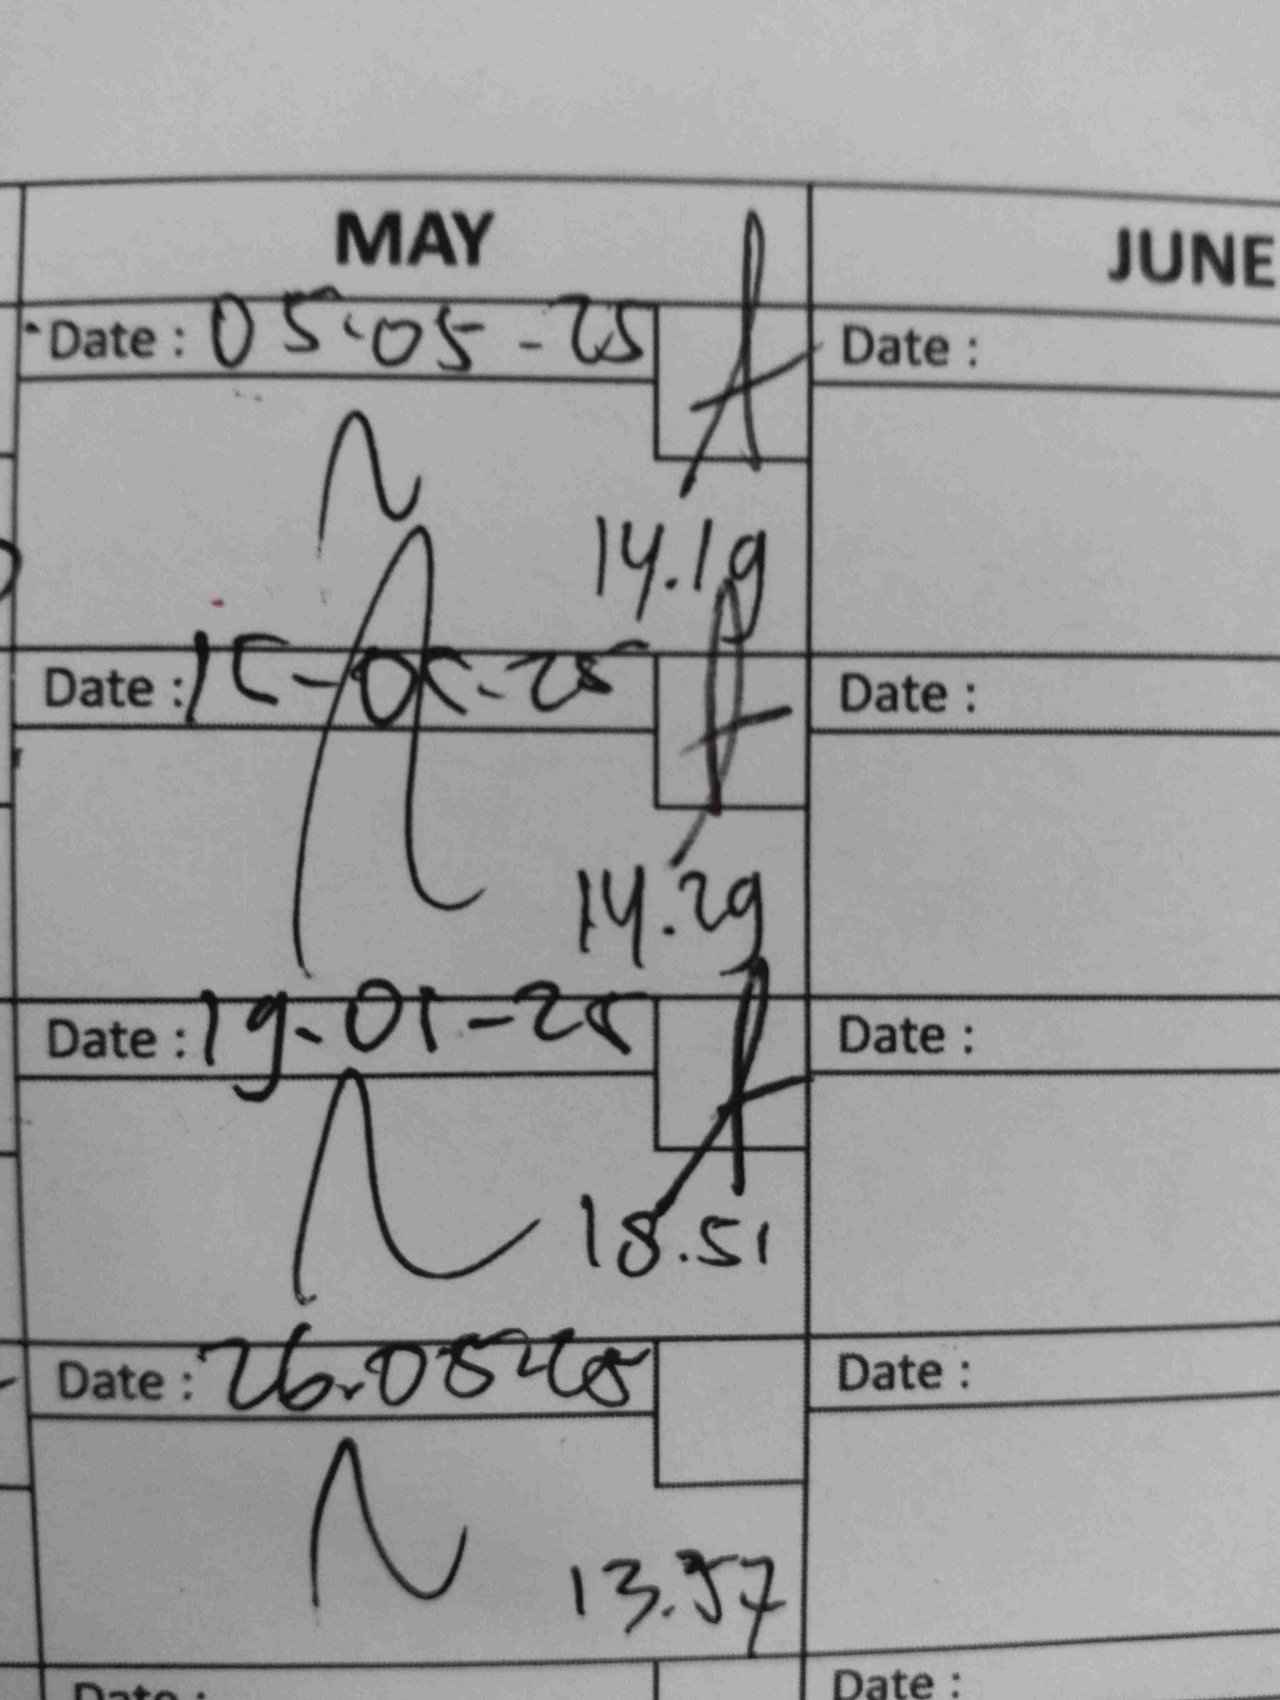 MAY
JUNE
Date : 05-05-25
Date :
14.19
Date : 15-05-25
Date :
14.29
Date : 19-05-25
Date :
18.51
Date : 26-05-25
Date :
13.57
Date :
Date :